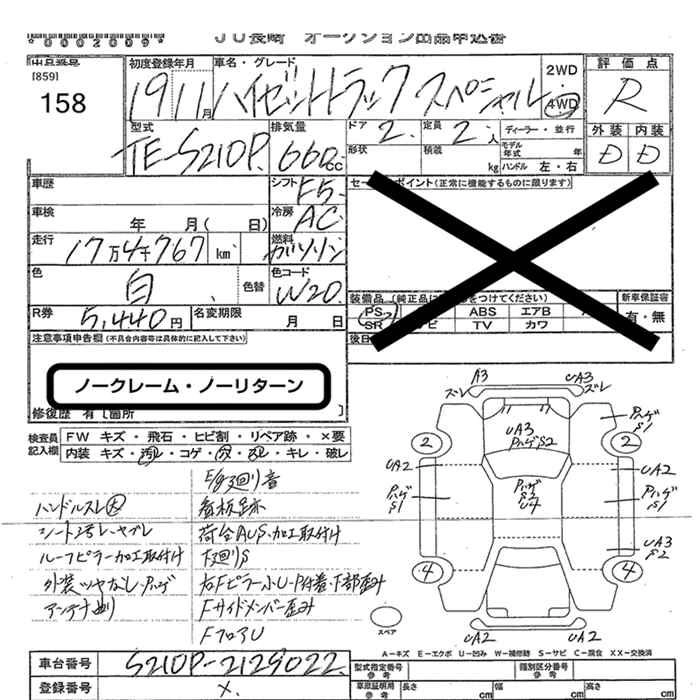 *0002009*
JU長崎 オークション出品申込書
出品番号
[859]
158
初度登録年月
19 11月
車名・グレード
ハイゼットトラック スペシャル
2WD
4WD
評価点
R
外装 内装
D D
型式
TE-S210P
排気量
660cc
ドア 2
定員 2人
ディーラー・並行
形状
積載
kg
モデル年式 年
ハンドル 左・右
車歴
シフト F5
車検
年 月( 日)
冷房 AC
走行
17万4千767 km
燃料
ガソリン
色
白
色替
色コード
W20
R券
5,440円
名変期限
月 日
セールスポイント(正常に機能するものに限ります)
装備品(純正品に をつけてください)
新車保証書
PS
ABS
エアB
有・無
SR
TV
カワ
注意事項申告欄(不具合内容等は具体的に記入して下さい)
ノークレーム・ノーリターン
修復歴 有[箇所 ]
検査員記入欄
FW キズ・飛石・ヒビ割・リペア跡・×要
内装 キズ・汚レ・コゲ・穴・スレ・キレ・破レ
E/g3回り音
ハンドルスレ大
看板足跡
シート汚レ・ヤブレ
荷台AUS・加工取付け
ルーフピラー加工取付け
下廻りS
外装ツヤなし・Pハゲ
右FピラーU・P付着・下部歪み
アンテナ曲り
Fサイドメンバー歪み
FフロアU
A3
UA3
ズレ
ズレ
UA3
Pハゲ S2
Pハゲ
S1
2
2
UA2
UA2
Pハゲ
S1
Pハゲ
S2
U4
Pハゲ
S1
UA3
S2
4
4
UA2
UA2
スペア
A－キズ E－エクボ U－凹み W－補修跡 S－サビ C－腐食 XX－交換済
車台番号
S210P-2129022
登録番号
×
型式指定番号
参考
類別区分番号
参考
車庫証明用
参考
長さ
cm
幅
cm
高さ
cm